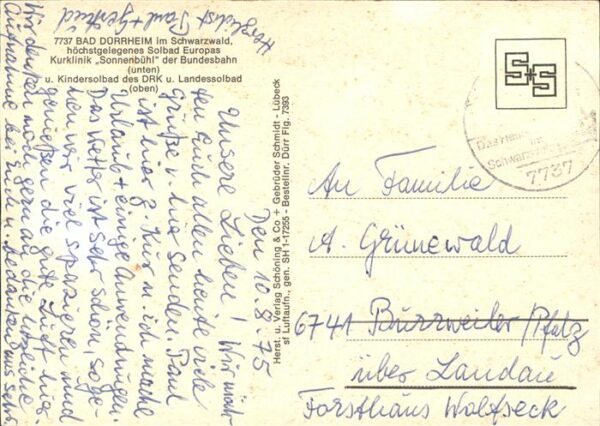 7737 BAD DÜRRHEIM im Schwarzwald,
höchstgelegenes Solbad Europas
Kurklinik „Sonnenbühl" der Bundesbahn
(unten)
u. Kindersolbad des DRK u. Landessolbad
(oben)
Den 10.8.75
Unsere Lieben! Wir möch-
ten Euch allen heute viele
Grüße v. hier senden. Paul
ist hier z. Kur u. ich mache
Urlaub + einige Anwendungen.
Das Wetter ist sehr schön, so ge-
hen wir viel spazieren und
genießen die gute Luft hier.
Wir denken noch gern an die herzliche
Aufnahme bei Euch u. bedanken uns sehr.
Herzlichst Paul + Gertrud
Herst. u. Verlag Schöning & Co + Gebrüder Schmidt - Lübeck
sf Luftaufn., gen. SH 1-17255 - Bestellnr. Dürr Flg. 7393
S+S
Schwarzwald
7737
An Familie
A. Grünewald
6741 Burrweiler/Pfalz
über Landau
Forsthaus Walfseck